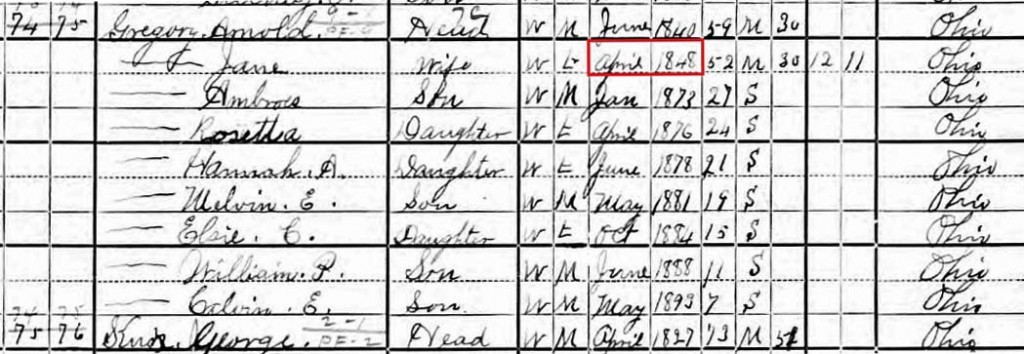 74 75 Gregory, Arnold. Head W M June 1840 59 M 30 Ohio
Jane Wife W F April 1848 52 M 30 12 11 Ohio
Ambroes Son W M Jan 1873 27 S Ohio
Rosetta Daughter W F April 1876 24 S Ohio
Hannah. A. Daughter W F June 1878 21 S Ohio
Melvin. E. Son W M May 1881 19 S Ohio
Elsie. C. Daughter W F Oct 1884 15 S Ohio
William. P. Son W M June 1888 11 S Ohio
Calvin. E. Son W M May 1893 7 S Ohio
75 76 George. Head W M April 1827 73 M 51 Ohio